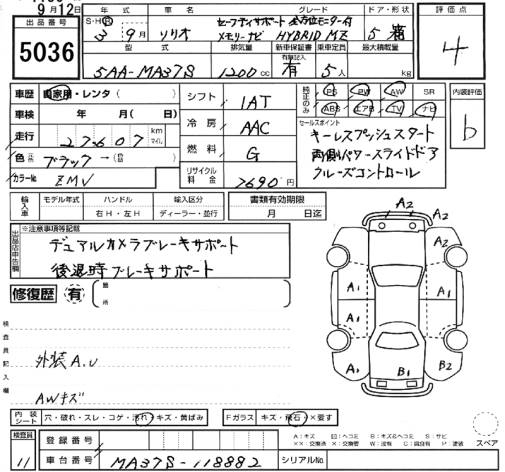 9月12日
出品番号
5036
年式 車名 グレード ドア・形状 評価点
S・H・R 3 9月 ソリオ セーフティサポート 全方位モニター付 メモリーナビ HYBRID MZ 5 箱 4
型式 排気量 新車保証書 乗車定員 最大積載量
5AA-MA37S 1200cc 有 5人 kg
車歴 自家用・レンタ( )
車検 年 月( 日)
走行 27607 km マイル
色 ブラック→( )
カラーNo ZMV
シフト IAT
冷房 AAC
燃料 G
リサイクル料金 7690円
純正のみ PS PW AW SR
ABS エアB TV ナビ
内装評価
b
セールスポイント
キーレスプッシュスタート
両側パワースライドドア
クルーズコントロール
輸入車 モデル年式 ハンドル 輸入区分 書類有効期限
右H・左H ディーラー・並行 月 日迄
出品店申告欄
※注意事項等記載
デュアルカメラブレーキサポート
後退時ブレーキサポート
修復歴 有 ( 箇所 )
検査員記入欄
外装A.U
AWキズ
A2
A2
A1 A1
A1 A1
A2 B1 B2
内装シート 穴・破れ・スレ・コゲ・汚れ・キズ・黄ばみ
Fガラス キズ・飛石・×要す
スペア
A:キズ 凹:ヘコミ B:キズ&ヘコミ S:サビ
××:交換済 ×:交換 W:波有 C:腐有 P:塗装
検査員 11
登録番号
車台番号 MA37S-118882 シリアルNo.